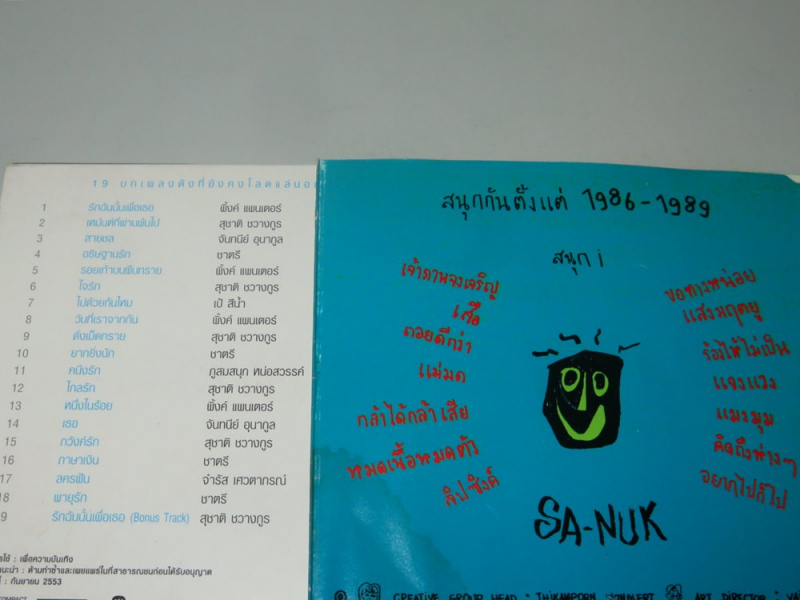 19 บทเพลงดังที่ยังคงโลดแล่นอยู่
1 รักฉันนั้นเพื่อเธอ พิ้งค์ แพนเตอร์
2 เหมันต์ที่ผ่านพ้นไป สุชาติ ชวางกูร
3 สายชล จันทนีย์ อูนากูล
4 อธิษฐานรัก ชาตรี
5 รอยเท้าบนผืนทราย พิ้งค์ แพนเตอร์
6 ใจรัก สุชาติ ชวางกูร
7 ไปด้วยกันไหม เป้ สีน้ำ
8 วันที่เราจากกัน พิ้งค์ แพนเตอร์
9 ดั่งเม็ดทราย สุชาติ ชวางกูร
10 ยากยิ่งนัก ชาตรี
11 คนึงรัก ภูสมสนุก หน่อสวรรค์
12 ไกลรัก สุชาติ ชวางกูร
13 หนึ่งในร้อย พิ้งค์ แพนเตอร์
14 เธอ จันทนีย์ อูนากูล
15 ภวังค์รัก สุชาติ ชวางกูร
16 ภาษาเงิน ชาตรี
17 ละครฝัน จำรัส เศวตาภรณ์
18 พายุรัก ชาตรี
9 รักฉันนั้นเพื่อเธอ (Bonus Track) สุชาติ ชวางกูร
ใช้ : เพื่อความบันเทิง
แนะนำ : ห้ามทำซ้ำและเผยแพร่ในที่สาธารณชนก่อนได้รับอนุญาต
: กันยายน 2553
COMPACT
สนุกกันตั้งแต่ 1986-1989
สนุก i
เจ้าดานจงเจริญ
เสือ
ถอยดีกว่า
แม่มด
กล้าได้กล้าเสีย
หมดเนื้อหมดตัว
ลิปซิงค์
ขอทางหน่อย
แสงมฤตยู
ร้องไห้ไม่เป็น
แจงแวง
แมงมุม
คิดถึงห่างๆ
อยากไปก็ไป
SA-NUK
CREATIVE GROUP HEAD : ART DIRECTOR :